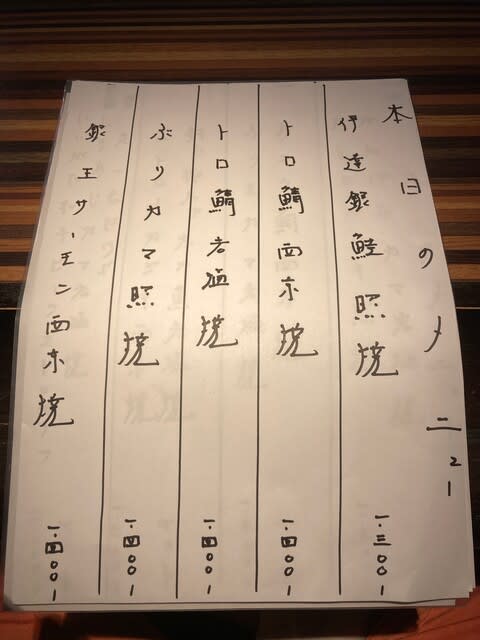 本日のメニュー
伊達銀鮭照焼 一.三〇〇ー
トロ鯖西京焼 一.四〇〇ー
トロ鯖岩塩焼 一.四〇〇ー
ぶりカマ照焼 一.四〇〇ー
銀王サーモン西京焼 一.四〇〇ー